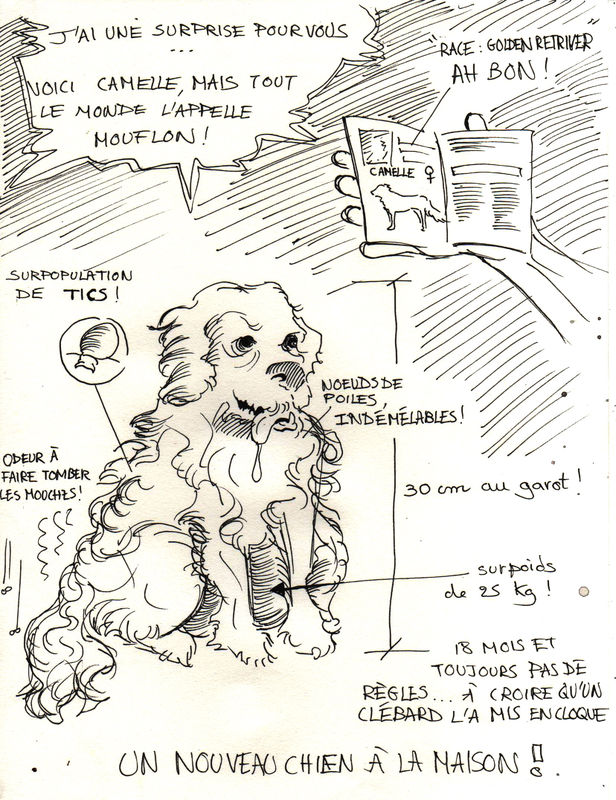 J'AI UNE SURPRISE POUR VOUS
...
VOICI CAMELLE, MAIS TOUT
LE MONDE L'APPELLE
MOUFLON !
"RACE : GOLDEN RETRIVER
AH BON !
CAMELLE ♀
SURPOPULATION
DE TICS !
NOEUDS DE
POILES,
INDÉMÉLABLES !
ODEUR À
FAIRE TOMBER
LES MOUCHES !
30 cm au garot !
surpoids
de 25 kg !
18 MOIS ET
TOUJOURS PAS DE
RÈGLES... À CROIRE QU'UN
CLÉBARD L'A MIS EN CLOQUE
UN NOUVEAU CHIEN À LA MAISON !